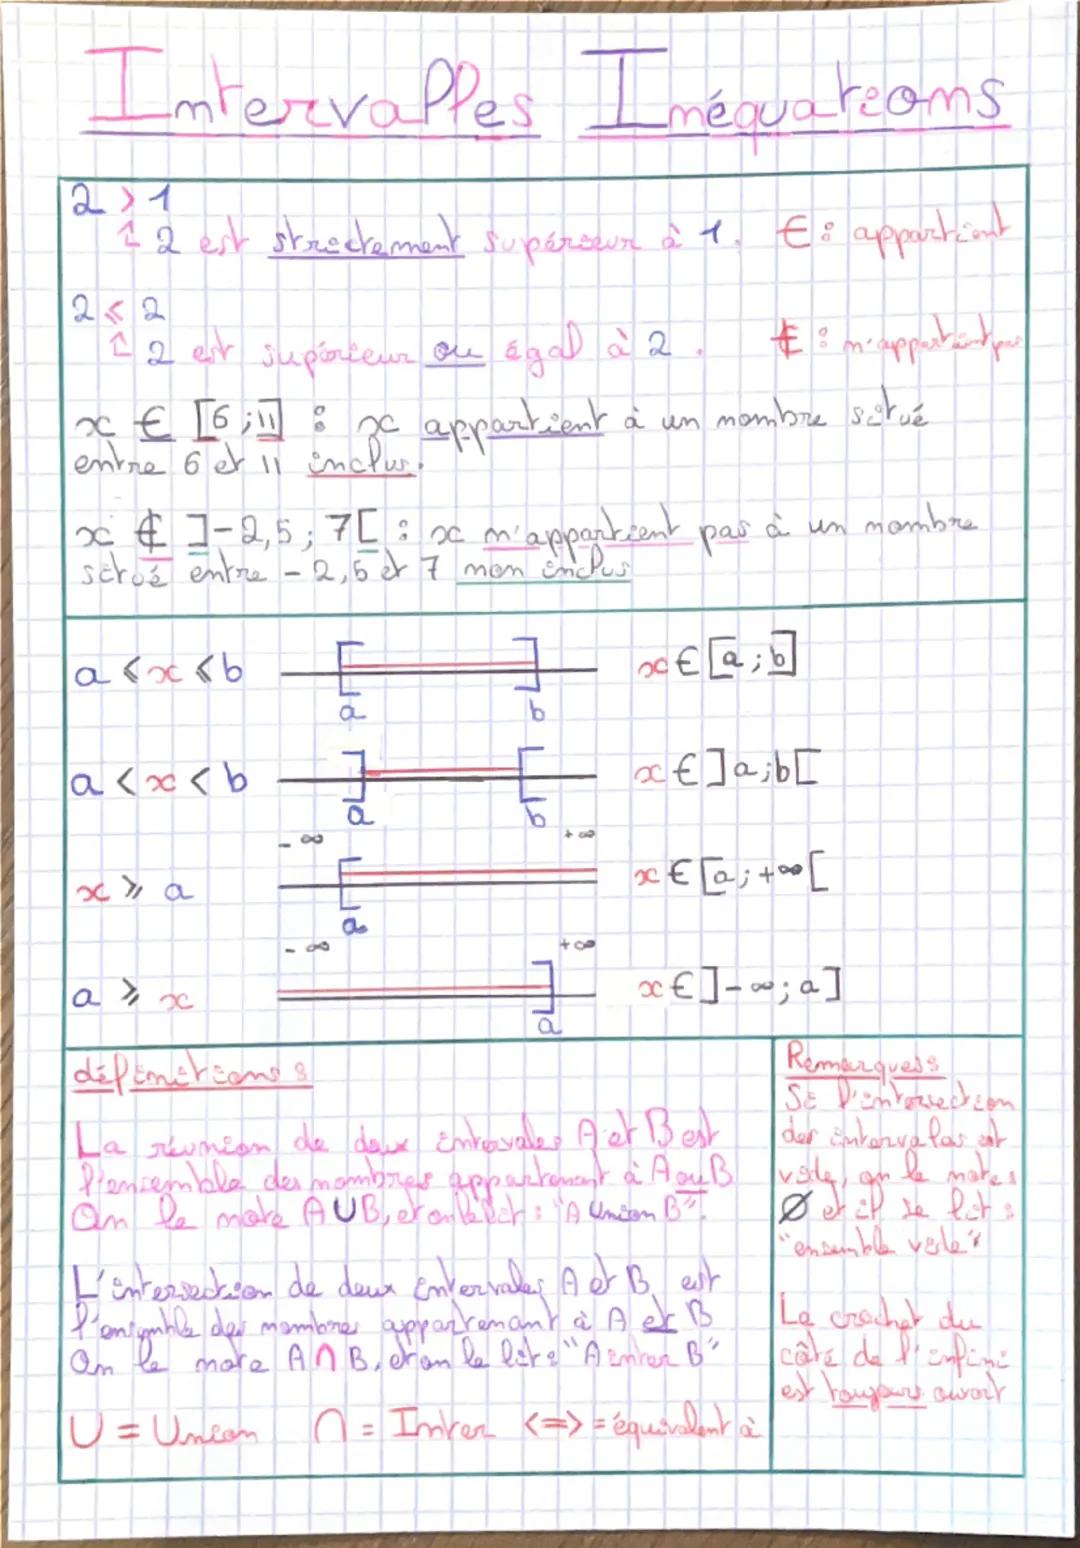 Intervalles Inéquations
2 > 1
↑ 2 est strictement supérieur à 1. € : appartient
2 ⩽ 2
↑ 2 est supérieur ou égal à 2. ∉ : n'appartient pas
x € [6 ; 11] : x appartient à un nombre situé
entre 6 et 11 inclus.
x ∉ ]-2,5 ; 7[ : x n'appartient pas à un nombre
situé entre -2,5 et 7 non inclus
a ⩽ x ⩽ b [ ] x € [a ; b]
a b
a < x < b ] [ x € ]a ; b[
a b
- ∞ + ∞
x ⩾ a [ x € [a ; +∞[
a
- ∞ + ∞
a ⩾ x ] x € ]-∞ ; a]
a
définitions :
La réunion de deux intervales A et B est
l'ensemble des nombres appartenant à A ou B
On le note A∪B, et on le lit : "A Union B".
L'intersection de deux intervales A et B est
l'ensemble des nombres appartenant à A et B
On le note A∩B, et on le lit : "A inter B"
∪ = Union ∩ = Inter <=> = équivalent à
Remarques :
Si l'intersection
des intervalas est
vide, on le notes
Ø et il se lit :
"ensemble vide"
Le crochet du
côté de l'infini
est toujours ouvert